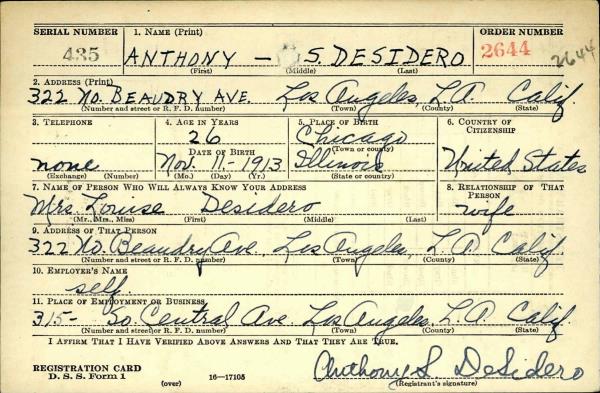 SERIAL NUMBER 1. NAME (Print) ORDER NUMBER
435 ANTHONY — S. DESIDERO 2644 2644
(First) (Middle) (Last)
2. ADDRESS (Print)
322 NO. BEAUDRY AVE. Los Angeles, L.A. Calif.
(Number and street or R. F. D. number) (Town) (County) (State)
3. TELEPHONE 4. AGE IN YEARS 5. PLACE OF BIRTH 6. COUNTRY OF CITIZENSHIP
26 Chicago
DATE OF BIRTH (Town or county)
none Nov. 11-1913 Illinois United States
(Exchange) (Number) (Mo.) (Day) (Yr.) (State or country)
7. NAME OF PERSON WHO WILL ALWAYS KNOW YOUR ADDRESS 8. RELATIONSHIP OF THAT PERSON
Mrs. Louise Desidero wife
(Mr., Mrs., Miss) (First) (Middle) (Last)
9. ADDRESS OF THAT PERSON
322 No. Beaudry Ave. Los Angeles, L.A. Calif
(Number and street or R. F. D. number) (Town) (County) (State)
10. EMPLOYER'S NAME
self.
11. PLACE OF EMPLOYMENT OR BUSINESS
315- So. Central Ave. Los Angeles, L.A. Calif.
(Number and street or R. F. D. number) (Town) (County) (State)
I AFFIRM THAT I HAVE VERIFIED ABOVE ANSWERS AND THAT THEY ARE TRUE.
Anthony S. DeSidero
REGISTRATION CARD
D. S. S. Form 1 (over) 16—17105 (Registrant's signature)